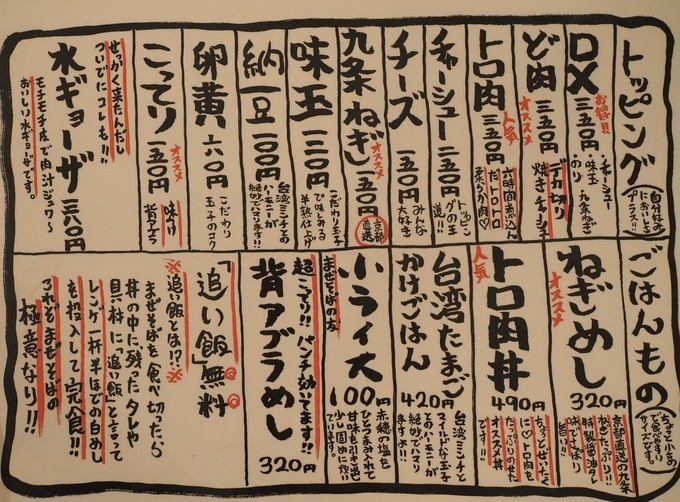 トッピング
(自分好みに
においしさ
プラス!!)
DX
お得!!
三五〇円
・チャーシュー
・味玉
・九条ねぎ
・のり
ど肉
オススメ
三五〇円
デカ切り
焼きチャーシュー
トロ肉
人気
三五〇円
六時間煮込んだ
トロトロ
柔らか肉♡
チャーシュー
二五〇円
トッピングの王道!!
チーズ
一五〇円
みんな
大好き
九条ねぎ
オススメ
一五〇円
京都直送
味玉
一二〇円
こだわり玉子
で味しみる
半熟仕上げ
納豆
一〇〇円
台湾ミンチとの
ハーモニーが
絶妙でハマります!!
卵黄
六〇円
こだわり
玉子のコク
こってり
オススメ
一五〇円
味付け
背アブラ
せっかく来たんだし
ついでにコレも!!
水ギョーザ
三八〇円
モチモチ皮で肉汁ジュワ〜
おいしい水ギョーザです。
ごはんもの
(ちょっと小さめ
で食べやすい
サイズです。)
ねぎめし
オススメ
320円
京都直送の九条
ねぎたっぷり!!
特製醤油タレ
トロ肉丼
人気
490円
ちょっとぜいたく
に♡トロ肉を
たっぷりのせた
オススメ丼
です!!
台湾たまご
かけごはん
420円
台湾ミンチと
マイルドな玉子
とのハーモニーが
絶妙でハマり
ますよ!!
まぜそばの友
小ライス
100円
赤穂の塩を
ひとつまみ入れて
甘味を引き出し
少し固めに炊い
ています。
超こってり!!パンチ効いてます!!
背アブラめし
320円
「追い飯」無料
※追い飯とは!?※
まぜそばを食べ切ったら
丼の中に残ったタレや
具材に「追い飯」と言って
レンゲ一杯半ほどの白めし
を投入して完食!!
これぞまぜそばの
極意なり!!